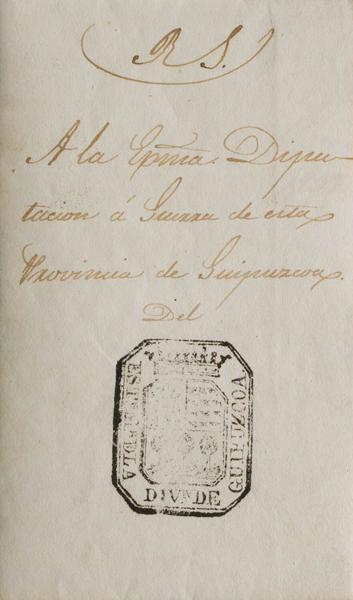 R S.
A la Exma. Dipu-
tacion á Guerra de esta
Provincia de Guipuzcoa.
Del
DIV. DE
GUIPUZCOA